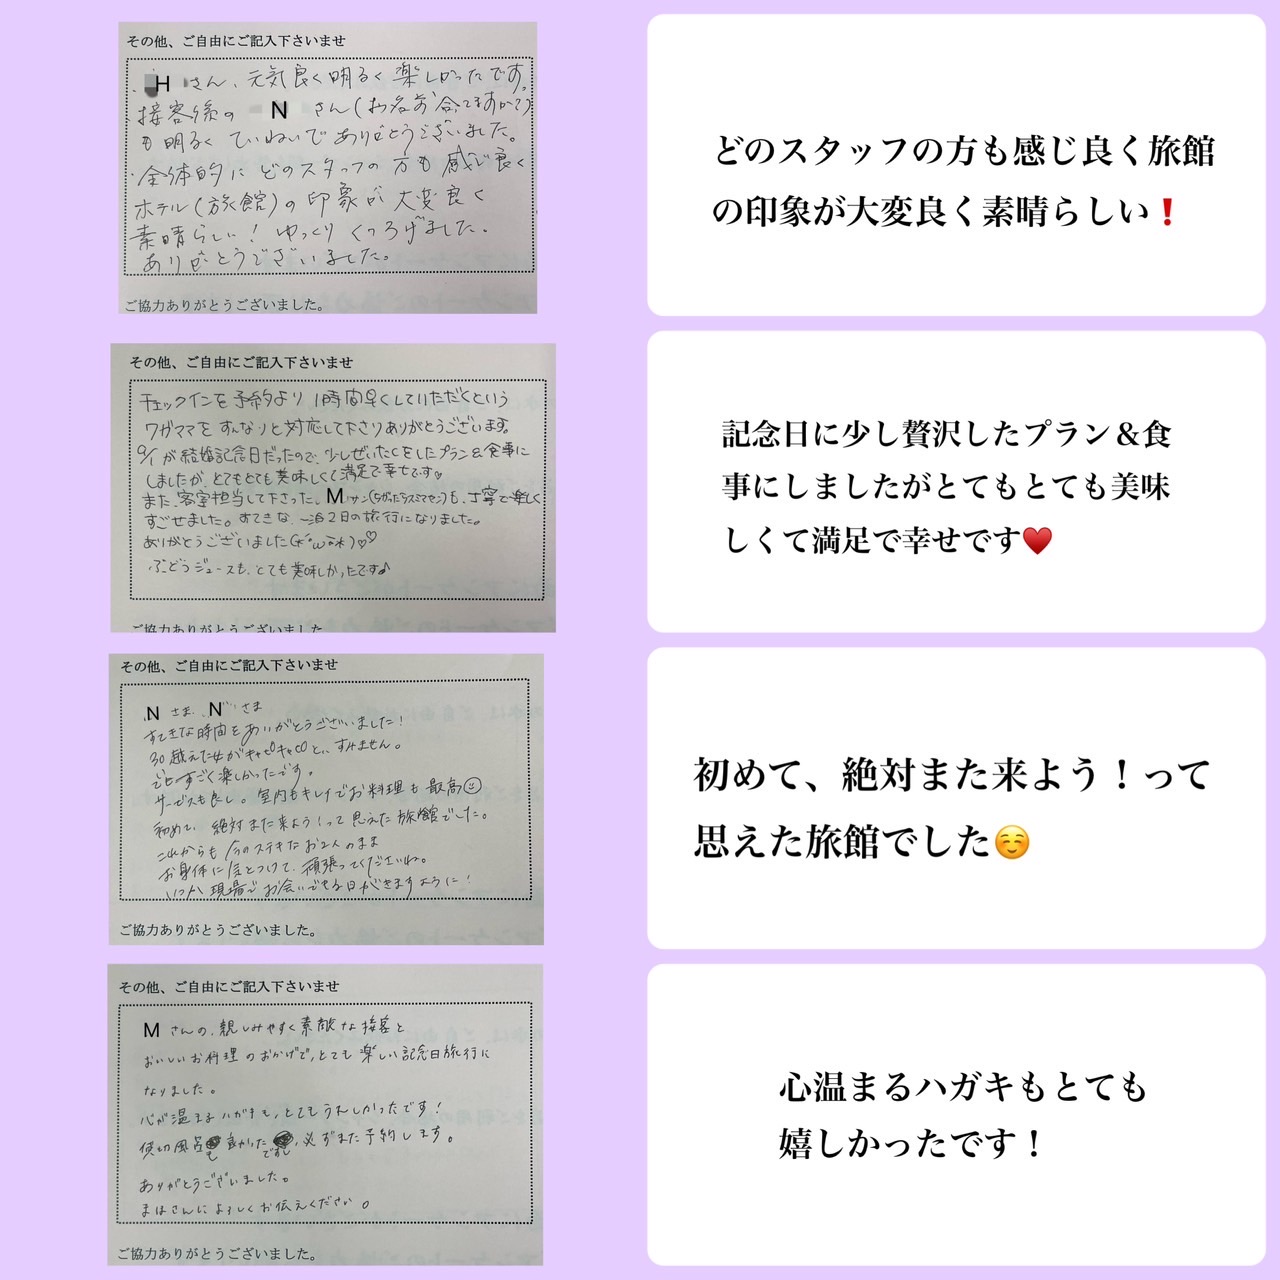 その他、ご自由にご記入下さいませ
H さん、元気良く明るく楽しかったです。
接客係の N さん(お名前合ってますか?)
も明るくていねいでありがとうございました。
全体的にどのスタッフの方も感じ良く
ホテル(旅館)の印象が大変良く
素晴らしい!ゆっくりくつろげました。
ありがとうございました。
ご協力ありがとうございました。
どのスタッフの方も感じ良く旅館
の印象が大変良く素晴らしい❗
その他、ご自由にご記入下さいませ
チェックインを予約より1時間早くしていただくという
ワガママをすんなりと対応して下さりありがとうございます。
9/1が結婚記念日だったので、少しぜいたくをしたプラン&食事に
しましたが、とてもとても美味しくて満足で幸せです♡
また、客室担当して下さった、Mサン(ちがったらスミマセン)も、丁寧で楽しく
すごせました。すてきな、一泊2日の旅行になりました。
ありがとうございました(*´ω`*)♡♡
ぶどうジュースも、とても美味しかったです♪
ご協力ありがとうございました
記念日に少し贅沢したプラン&食
事にしましたがとてもとても美味
しくて満足で幸せです♥️
その他、ご自由にご記入下さいませ
N さま、N さま
すてきな時間をありがとうございました!
30越えた女がキャピキャピと、すみません。
でもすごく楽しかったです。
サービスも良し。室内もキレイでお料理も最高☺
初めて、絶対また来よう!って思えた旅館でした。
これからも今のステキなお2人のまま
お身体に気をつけて、頑張ってくださいね。
いつか現場でお会いできる日がきますように!
ご協力ありがとうございました。
初めて、絶対また来よう!って
思えた旅館でした☺️
その他、ご自由にご記入下さいませ
M さんの、親しみやすく素敵な接客と
おいしいお料理のおかげで、とても楽しい記念日旅行に
なりました。
心が温まるハガキも、とてもうれしかったです!
貸切風呂も良かったです。必ずまた予約します。
ありがとうございました。
まほさんによろしくお伝えください。
ご協力ありがとうございました。
心温まるハガキもとても
嬉しかったです!